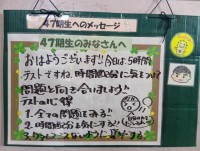 47期生へのメッセージ
47期生のみなさんへ
おはようございます!!今日は5時間
テストですね。時間配分に気をつけて
問題と向き合いましょう!!
テストの心得
1.全ての問題をみる!!
2.時間配分を気にする!!